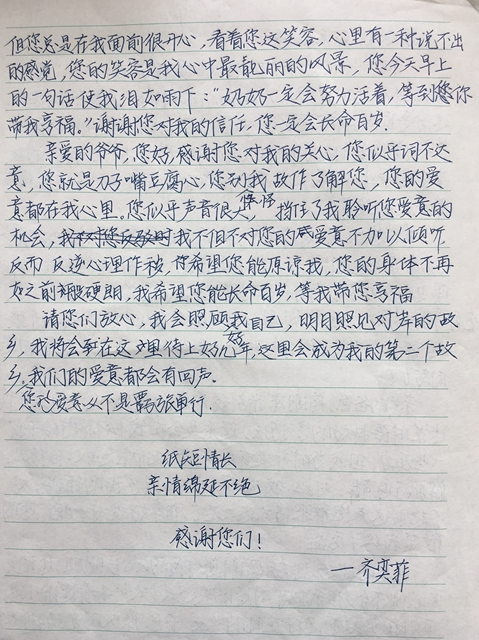 但您总是在我面前很开心，看着您这笑容，心里有一种说不出
的感觉，您的笑容是我心中最靓丽的风景，您今天早上
的一句话使我泪如雨下：“奶奶一定会努力活着，等到您你
带我享福。”谢谢您对我的信任，您一定会长命百岁.
亲爱的爷爷，您好，感谢您对我的关心，您似乎词不达
意，您就是刀子嘴豆腐心，您别我故作了解您，您的爱
意都在我心里。您似乎声音很大，挡住了我聆听您爱意的
机会，我不但不对您的爱意不加以倾听
反而 反逆心理作被，希望您能原谅我，您的身体不再
如之前那般硬朗，我希望您能长命百岁，等我带您享福
请您们放心，我会照顾我自己，明日照见对岸的故
乡，我将会到在这里待上好几年，这里会成为我的第二个故
乡，我们的爱意都会有回声.
您的爱意从不是单行.
纸短情长
亲情绵延不绝
感谢您们！
—齐奕菲